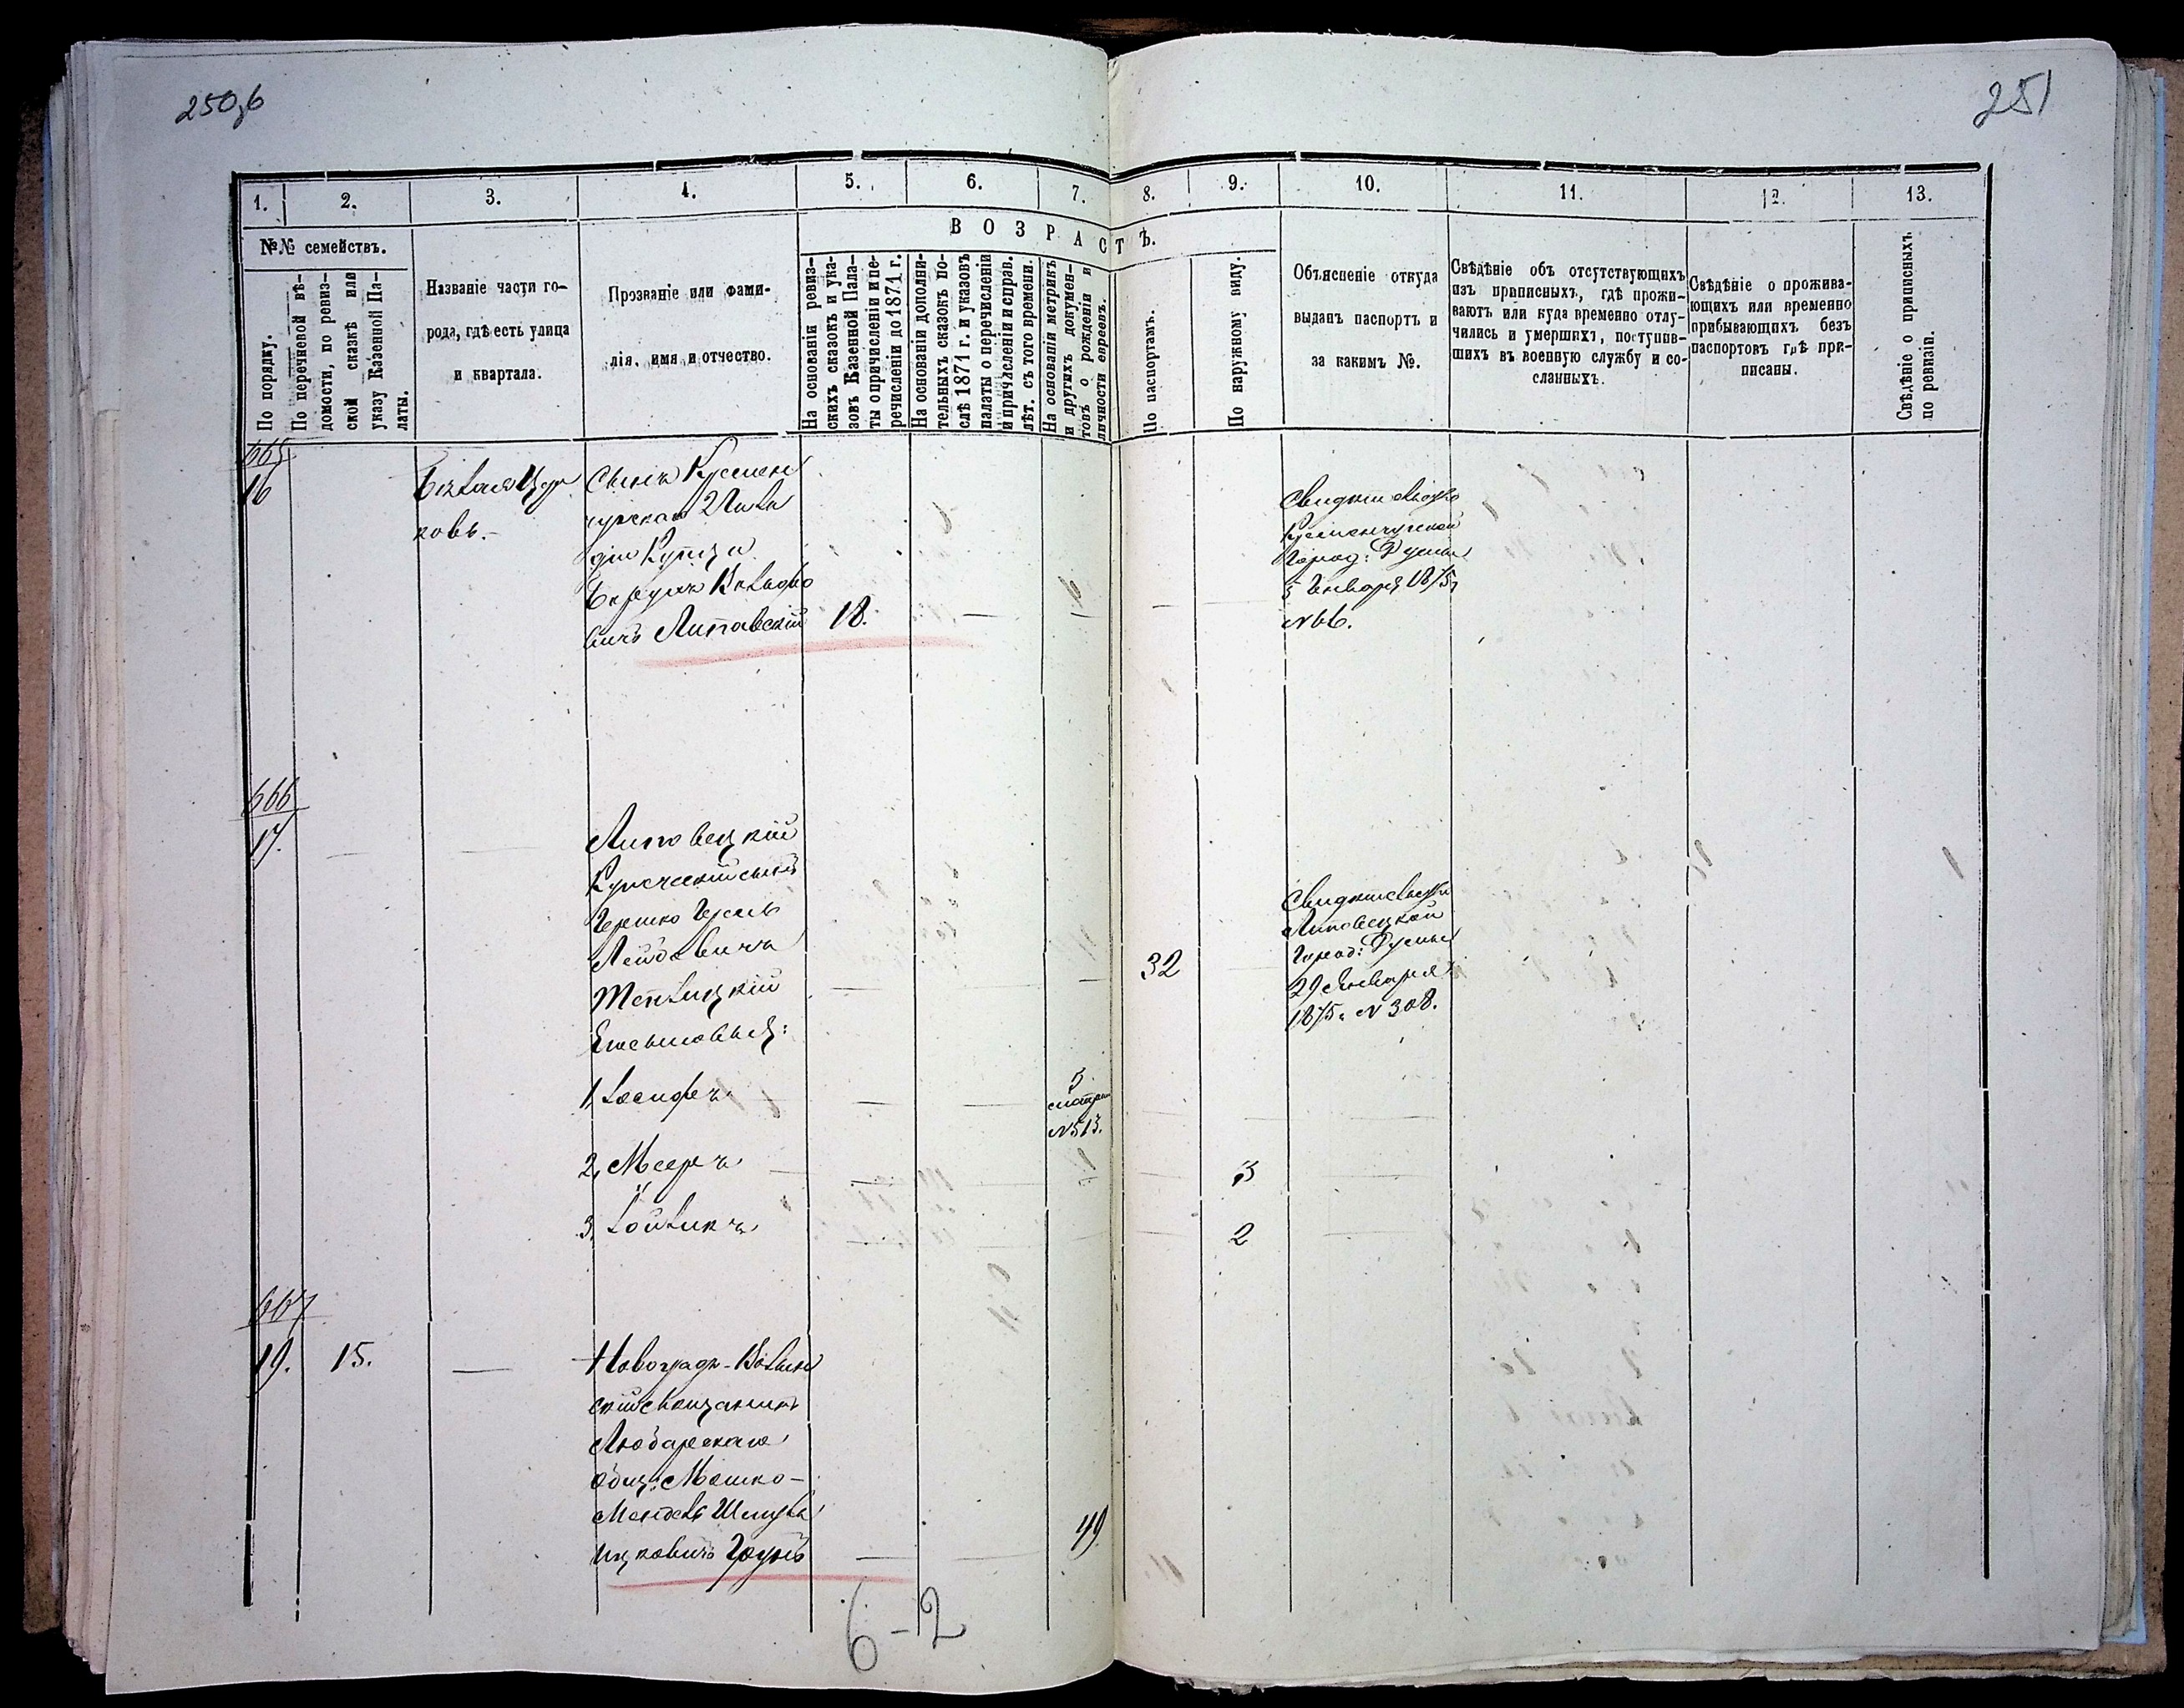 250об
251
1. 2. 3. 4. 5. 6. 7. 8. 9. 10. 11. 12. 13.
№№ семействъ.
ВОЗРАСТЪ.
По порядку.
По перечневой вѣ-
домости, по ревиз-
ской сказкѣ или
указу Казенной Па-
латы.
Названіе части го-
рода, гдѣ есть улица
и квартала.
Прозваніе или фами-
лія, имя и отчество.
На основаніи ревиз-
скихъ сказокъ и ука-
зовъ Казенной Пала-
ты о причисленіи и пе-
речисленіи до 1871 г.
На основаніи дополни-
тельныхъ сказокъ по-
слѣ 1871 г. и указовъ
палаты о перечисленіи
и причисленіи и справ.
лѣт. съ того времени.
На основаніи метрикъ
и другихъ докумен-
товъ о рожденіи и
личности евреевъ.
По паспортамъ.
По наружному виду.
Объясненіе откуда
выданъ паспортъ и
за какимъ №.
Свѣдѣніе объ отсутствующихъ
изъ приписныхъ, гдѣ прожи-
ваютъ или куда временно отлу-
чились и умершихъ, поступив-
шихъ въ военную службу и со-
сланныхъ.
Свѣдѣніе о прожива-
ющихъ или временно
прибывающихъ безъ
паспортовъ гдѣ при-
писаны.
Свѣдѣніе о приписныхъ
по ревизіи.
665
16
Бѣлая Цер
ковь.-
Сынъ Кремен
чугскаго 2 Гиль
діи Купца
Вольфо
вичъ Липавскій
18.
Свидѣтельство
Кременчугской
Город: Думы
5 Января 1875 г
№ 66.
666
17.
Липовецкій
Купеческій сынъ
Гершко
Лейбовичъ
Теплицкій
Сыновья:
32
Свидѣтельство
Липовецкой
Город: Думы
29 Января
1875 г № 308.
1, Іосифъ
5
метрик
№ 513.
2, Мееръ
3
3, Іойликъ
2
667
19.
15.
Новоградъ-Волын
скій мѣщанинъ
Любарскаго
общ: Мошко-
Мендель Шмуль
Ицковичъ
49
6-2